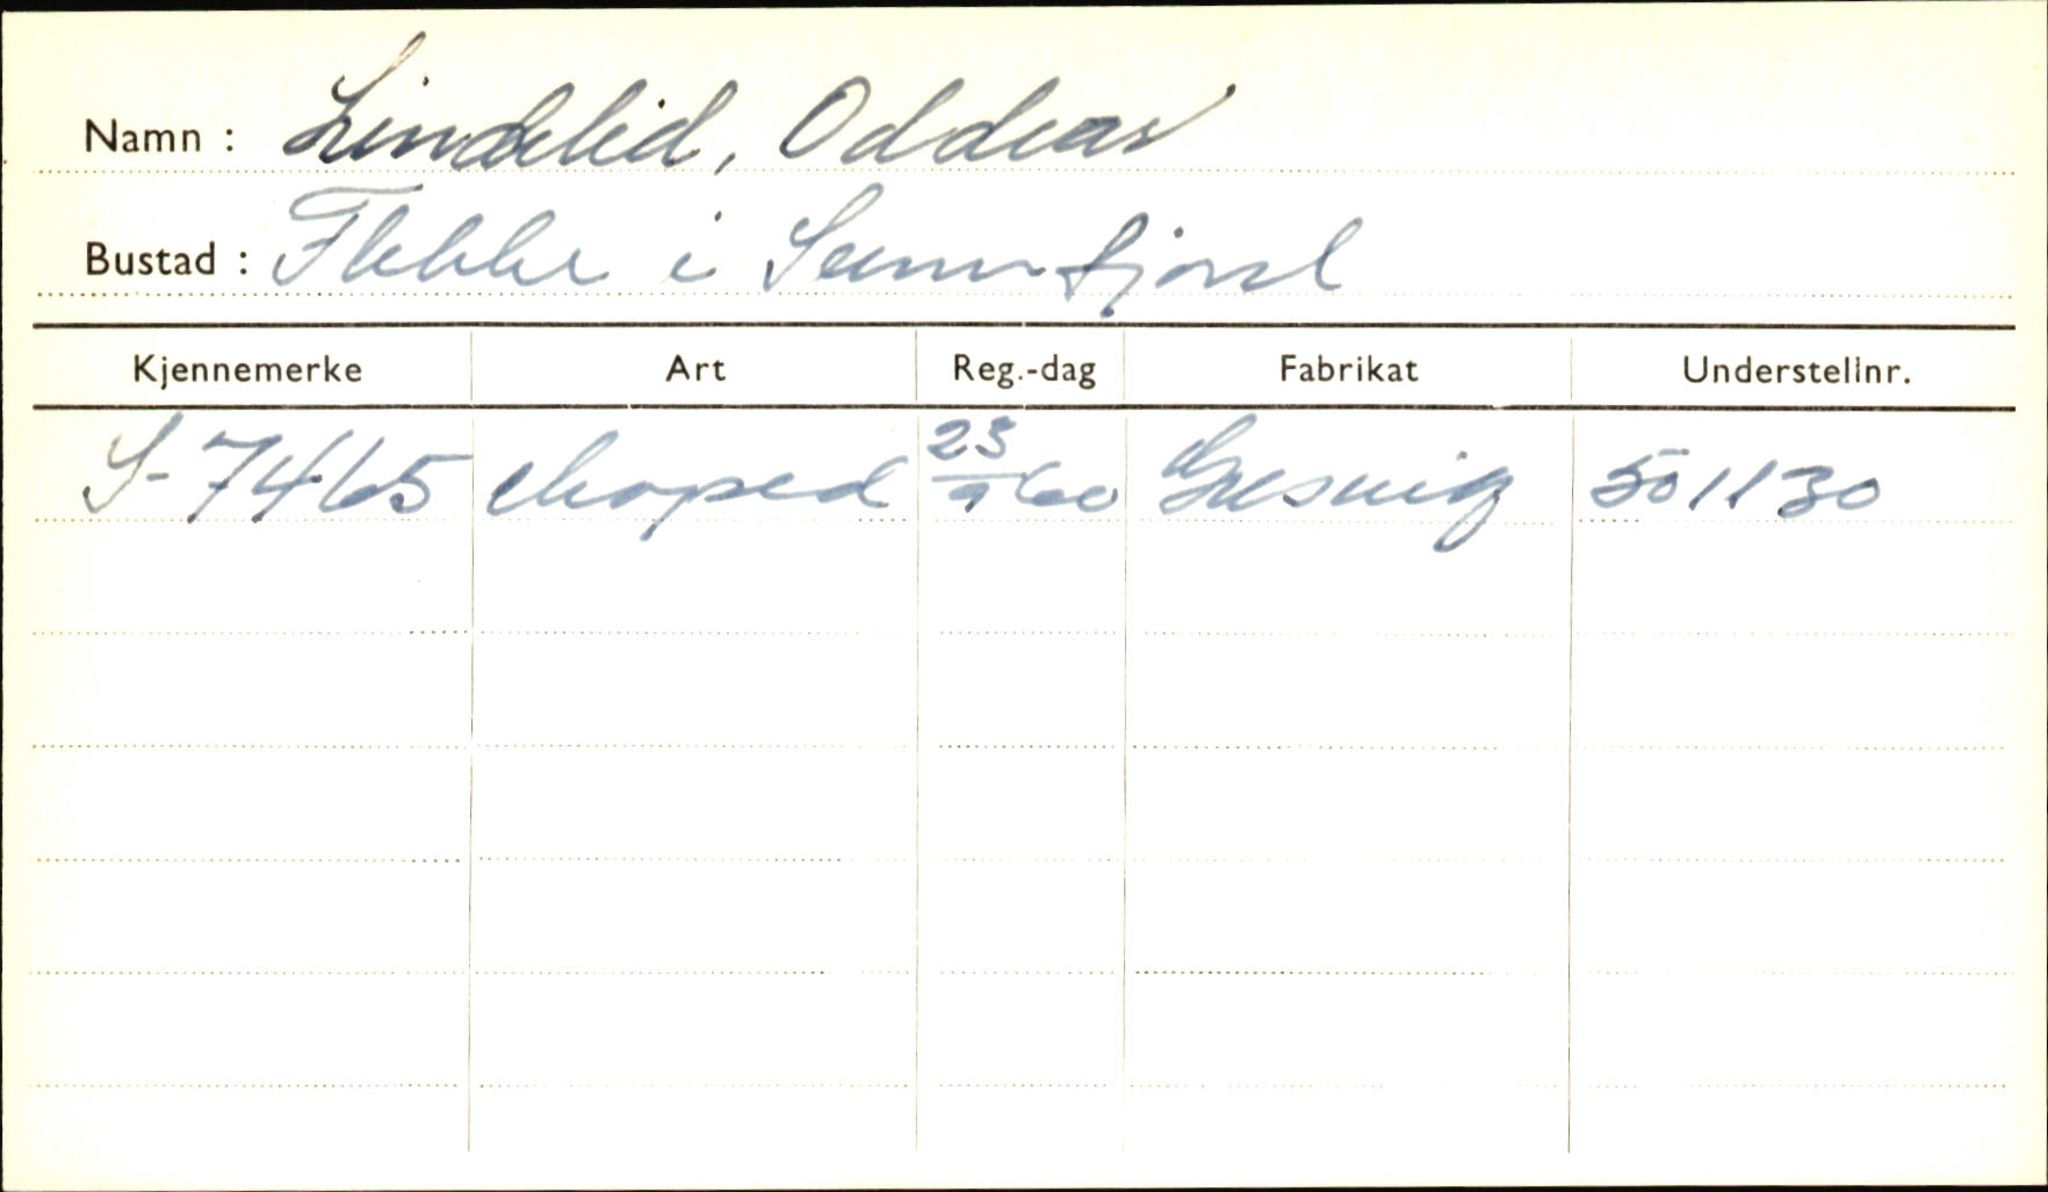 Namn : Lindelid, Oddvar
Bustad : Flekke i Sunnfjord
Kjennemerke Art Reg.-dag Fabrikat Understellnr.
S-7465 Moped 23/9 60 Gresvig 501130